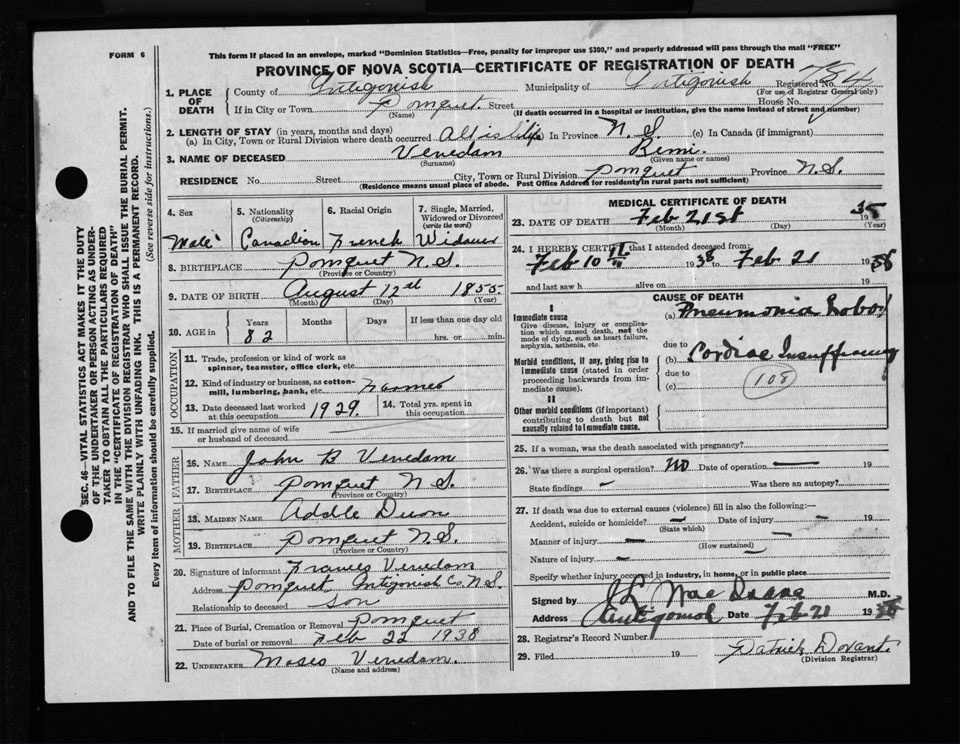 FORM 6
This form if placed in an envelope, marked "Dominion Statistics—Free, penalty for improper use $300," and properly addressed will pass through the mail "FREE"
PROVINCE OF NOVA SCOTIA—CERTIFICATE OF REGISTRATION OF DEATH
1. PLACE OF DEATH
County of Antigonish Municipality of Antigonish Registered No. 784
(For use of Registrar General only)
If in City or Town Pomquet Street House No.
(Name) (If death occurred in a hospital or institution, give the name instead of street and number)
2. LENGTH OF STAY (in years, months and days)
(a) In City, Town or Rural Division where death occurred All is life (b) In Province N.S. (c) In Canada (if immigrant)
3. NAME OF DECEASED Venedam Remi.
(Surname) (Given name or names)
RESIDENCE No. Street City, Town or Rural Division Pomquet Province N.S.
(Residence means usual place of abode. Post Office Address for residents in rural parts not sufficient)
4. Sex
Male
5. Nationality
(Citizenship)
Canadian
6. Racial Origin
French
7. Single, Married, Widowed or Divorced
(write the word)
Widower
8. BIRTHPLACE Pomquet N.S.
(Province or Country)
9. DATE OF BIRTH August 12th 1855
(Month) (Day) (Year)
10. AGE in
Years Months Days If less than one day old
82 hrs. or min.
OCCUPATION
11. Trade, profession or kind of work as spinner, teamster, office clerk, etc.
12. Kind of industry or business, as cotton-mill, lumbering, bank, etc. Farmer
13. Date deceased last worked at this occupation 1929
14. Total yrs. spent in this occupation
15. If married give name of wife or husband of deceased
FATHER
16. NAME John B Venedam
17. BIRTHPLACE Pomquet N.S.
(Province or Country)
MOTHER
18. MAIDEN NAME
19. BIRTHPLACE Pomquet N.S.
(Province or Country)
20. Signature of informant Venedam
Address Pomquet Antigonish Co N.S.
Relationship to deceased Son
21. Place of Burial, Cremation or Removal Pomquet
Date of burial or removal Feb 22 1938
22. UNDERTAKER Moses Venedam.
(Name and address)
MEDICAL CERTIFICATE OF DEATH
23. DATE OF DEATH Feb 21st 1938
(Month) (Day) (Year)
24. I HEREBY CERTIFY that I attended deceased from:
Feb 10th 1938 to Feb 21 1938
and last saw h alive on 19
CAUSE OF DEATH
I
Immediate cause
Give disease, injury or complication which caused death, not the mode of dying, such as heart failure, asphyxia, asthenia, etc.
(a) Pneumonia Lobar
due to
Morbid conditions, if any, giving rise to immediate cause (stated in order proceeding backwards from immediate cause).
(b) Cardiac Insufficiency
due to
(c)
108
II
Other morbid conditions (if important) contributing to death but not causally related to immediate cause.
25. If a woman, was the death associated with pregnancy?
26. Was there a surgical operation? NO Date of operation — 19
State findings — Was there an autopsy?
27. If death was due to external causes (violence) fill in also the following:—
Accident, suicide or homicide? — Date of injury — 19
(State which)
Manner of injury —
(How sustained)
Nature of injury —
Specify whether injury occurred in industry, in home, or in public place
Signed by M.D.
Address Antigonish Date Feb 21 1938
28. Registrar's Record Number
29. Filed 19 Patrick
(Division Registrar)
SEC. 46—VITAL STATISTICS ACT MAKES IT THE DUTY
OF THE UNDERTAKER OR PERSON ACTING AS UNDER-
TAKER TO OBTAIN ALL THE PARTICULARS REQUIRED
IN THE "CERTIFICATE OF REGISTRATION OF DEATH"
AND TO FILE THE SAME WITH THE DIVISION REGISTRAR WHO SHALL ISSUE THE BURIAL PERMIT.
WRITE PLAINLY WITH UNFADING INK. THIS IS A PERMANENT RECORD.
Every item of information should be carefully supplied. (See reverse side for instructions.)